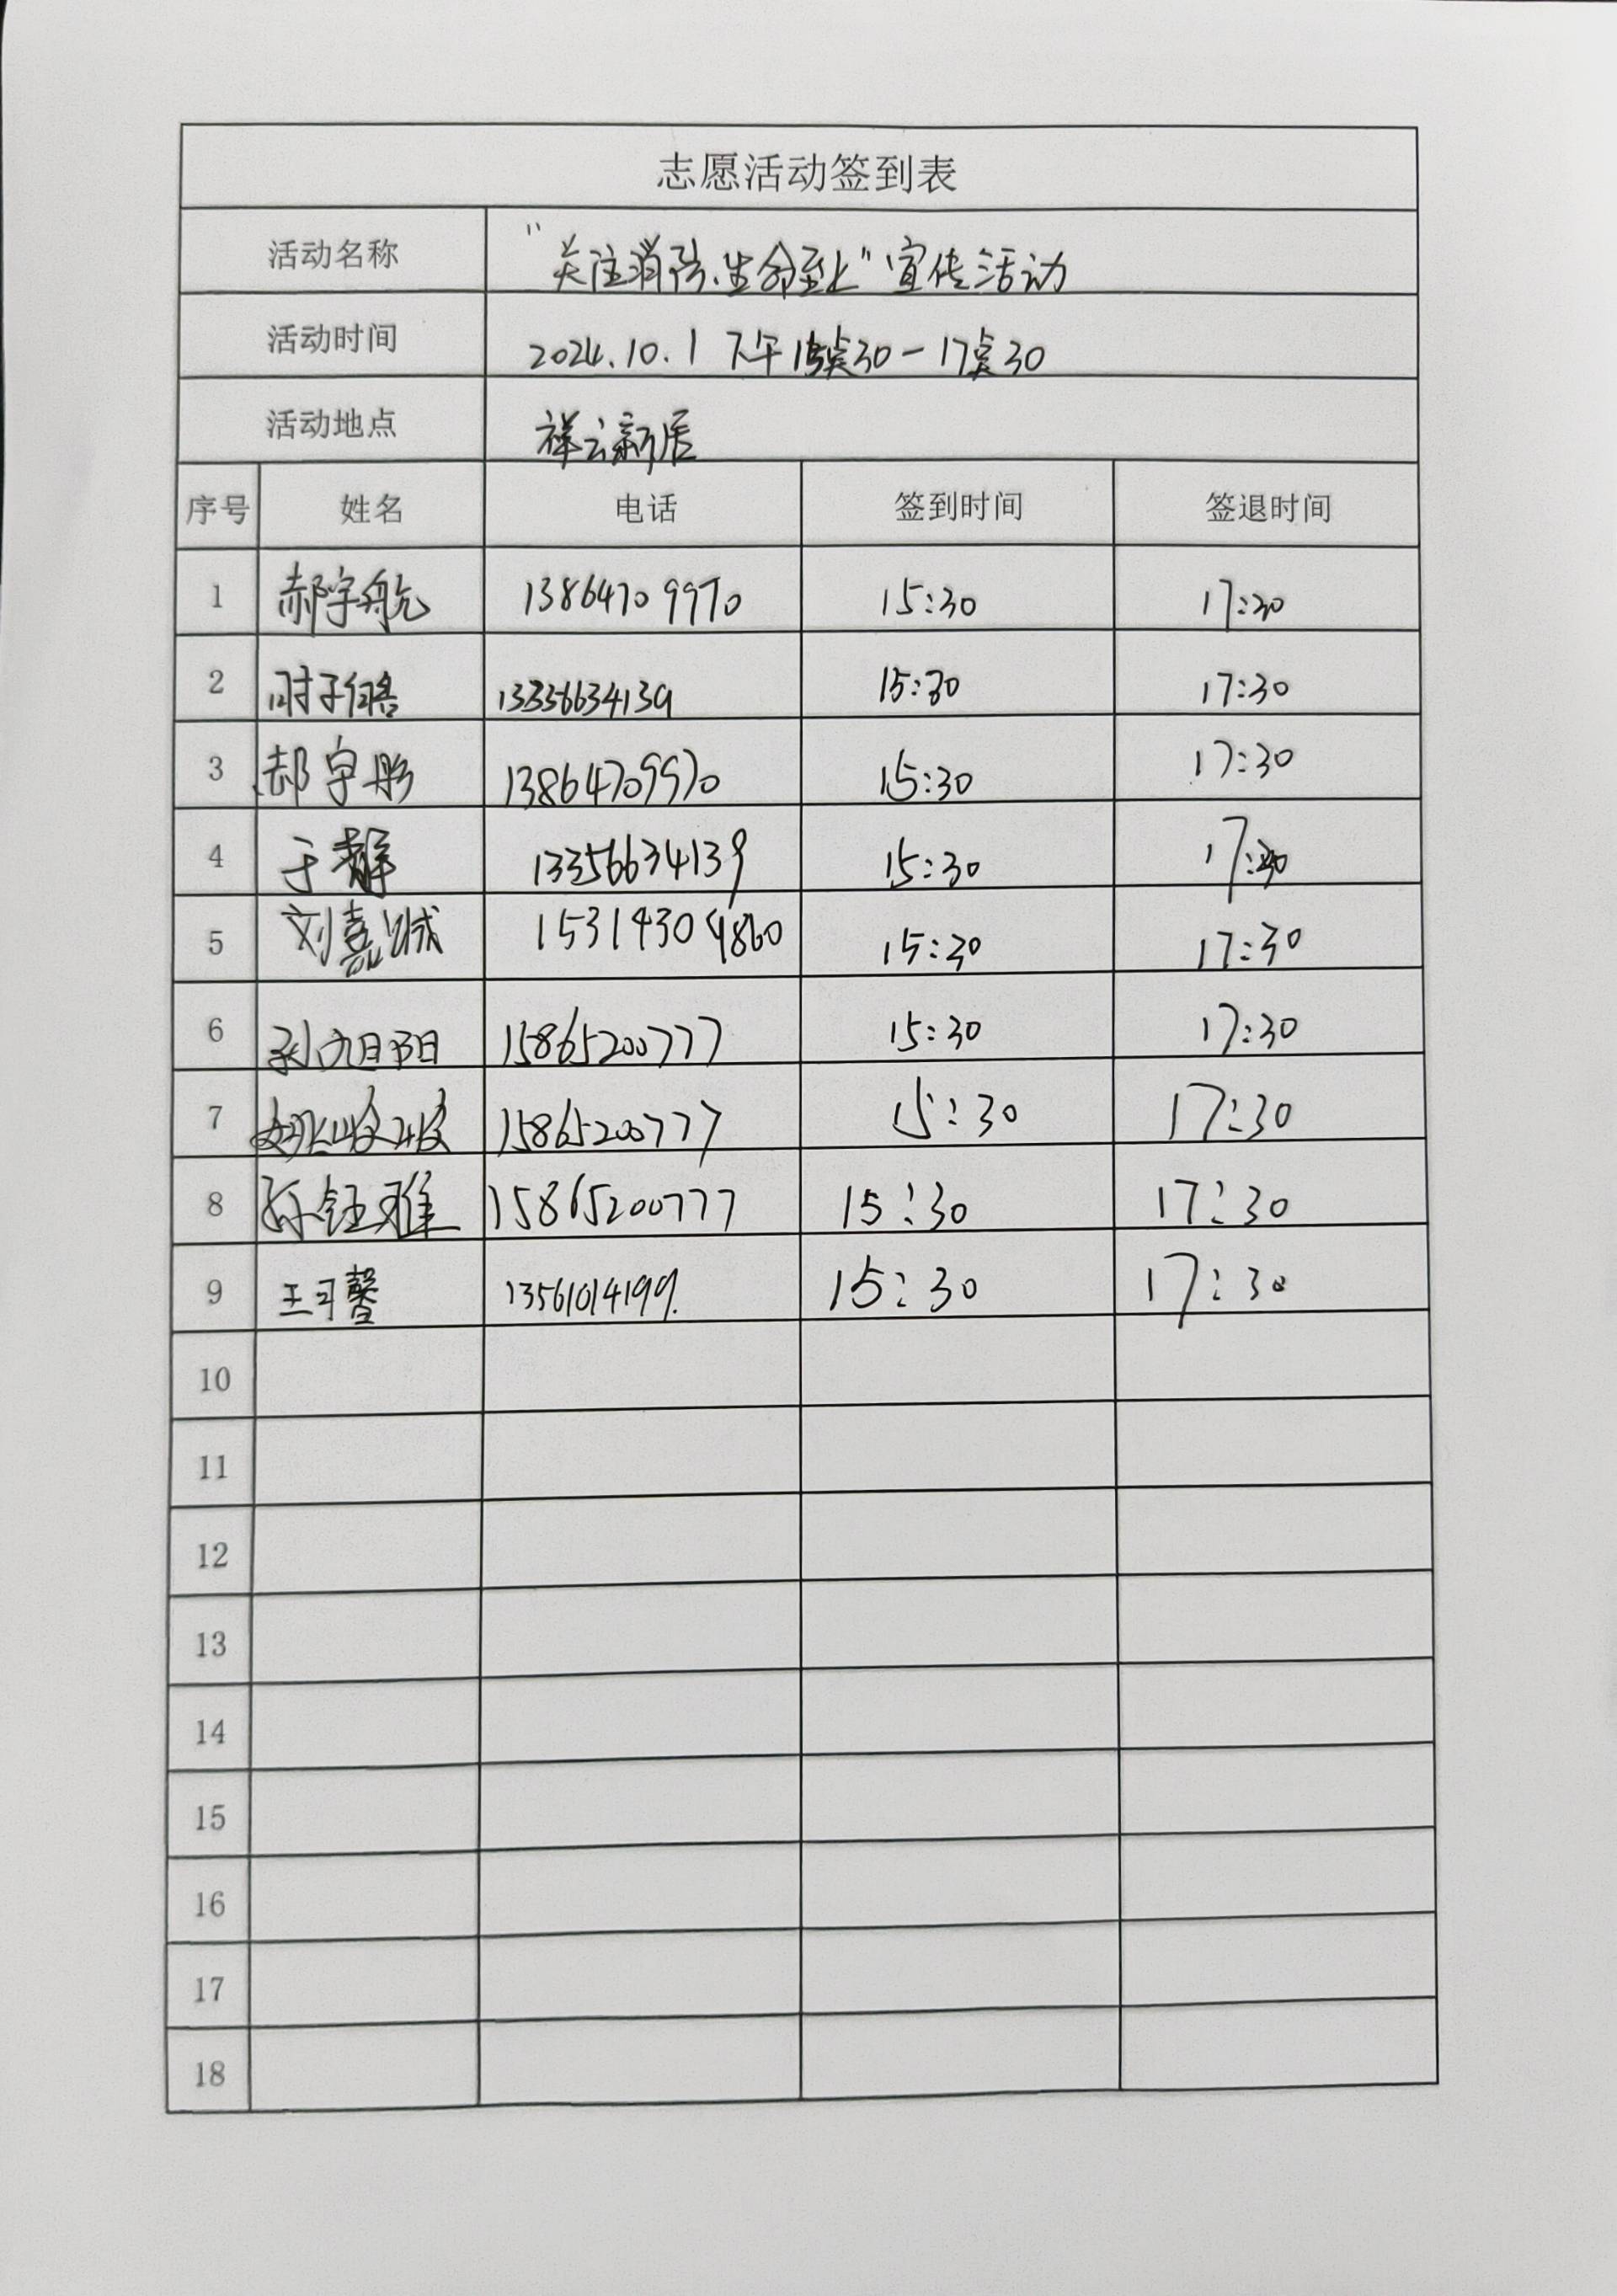 志愿活动签到表
活动名称 "关注消防、生命至上"宣传活动
活动时间 2024.10.1 下午15点30-17点30
活动地点 祥云新居
序号 姓名 电话 签到时间 签退时间
1 郝宇航 13864709970 15:30 17:30
2 时子皓 13356634139 15:30 17:30
3 郝宇彤 13864709970 15:30 17:30
4 于静 13356634139 15:30 17:30
5 刘嘉诚 15314304860 15:30 17:30
6 孙旭阳 15865200777 15:30 17:30
7 15865200777 15:30 17:30
8 孙钰雅 15865200777 15:30 17:30
9 王可馨 13561014199. 15:30 17:30
10
11
12
13
14
15
16
17
18